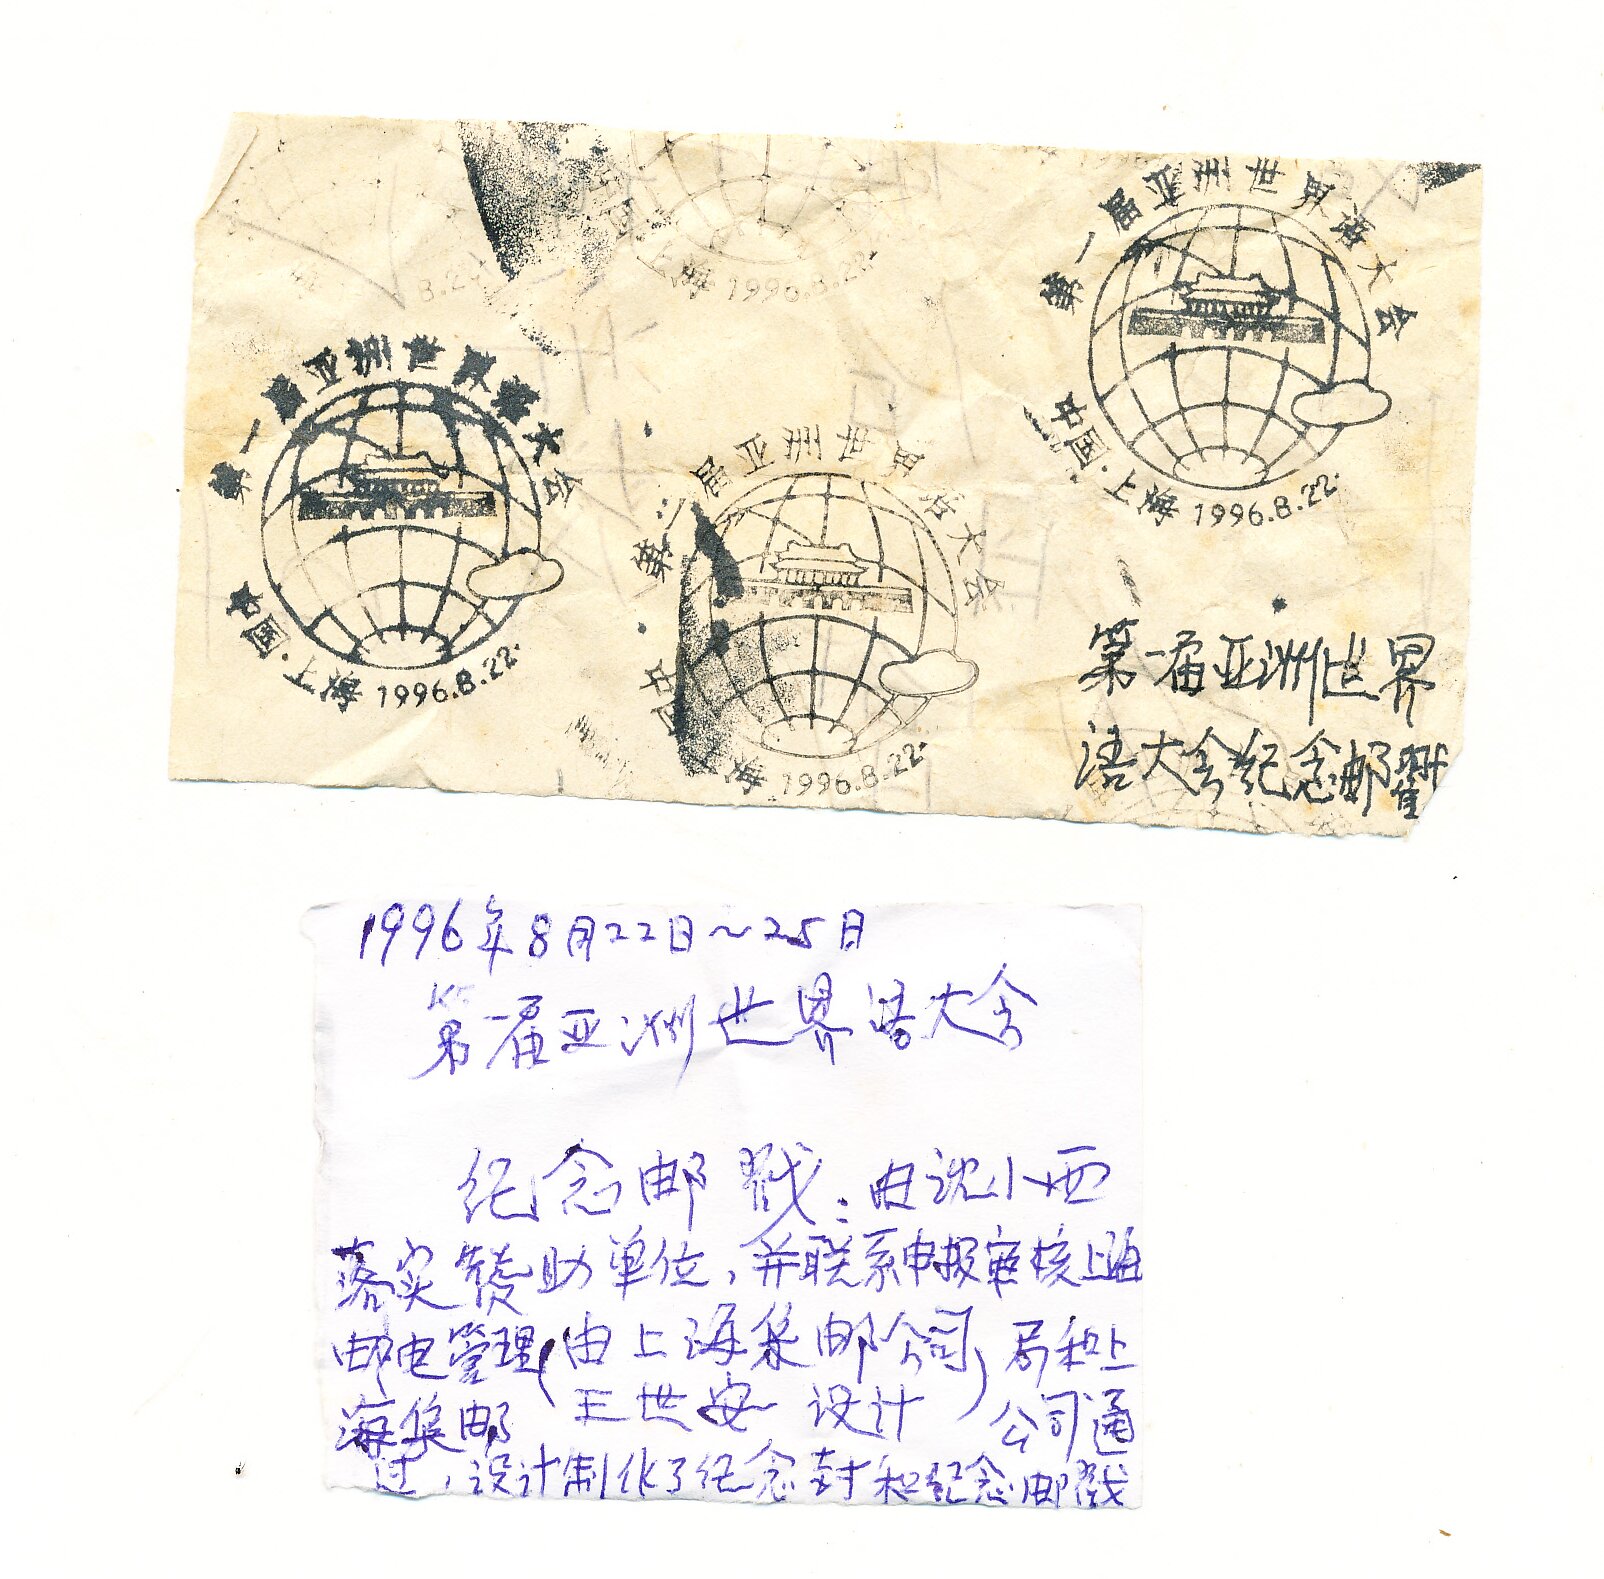 中国·上海 1996.8.22.
第一届亚洲世界语大会
中国·上海 1996.8.22.
第一届亚洲世界语大会
中国·上海 1996.8.22.
第一届亚洲世界语大会
中国·上海 1996.8.22.
第一届亚洲世界
语大会纪念邮戳
1996年8月22日~25日
第一届亚洲世界语大会
纪念邮戳：由沈小西
落实赞助单位，并联系申报审核上海
邮电管理(由上海集邮公司)局和上
海集邮 王世安 设计 公司通
过，设计制作了纪念封和纪念邮戳